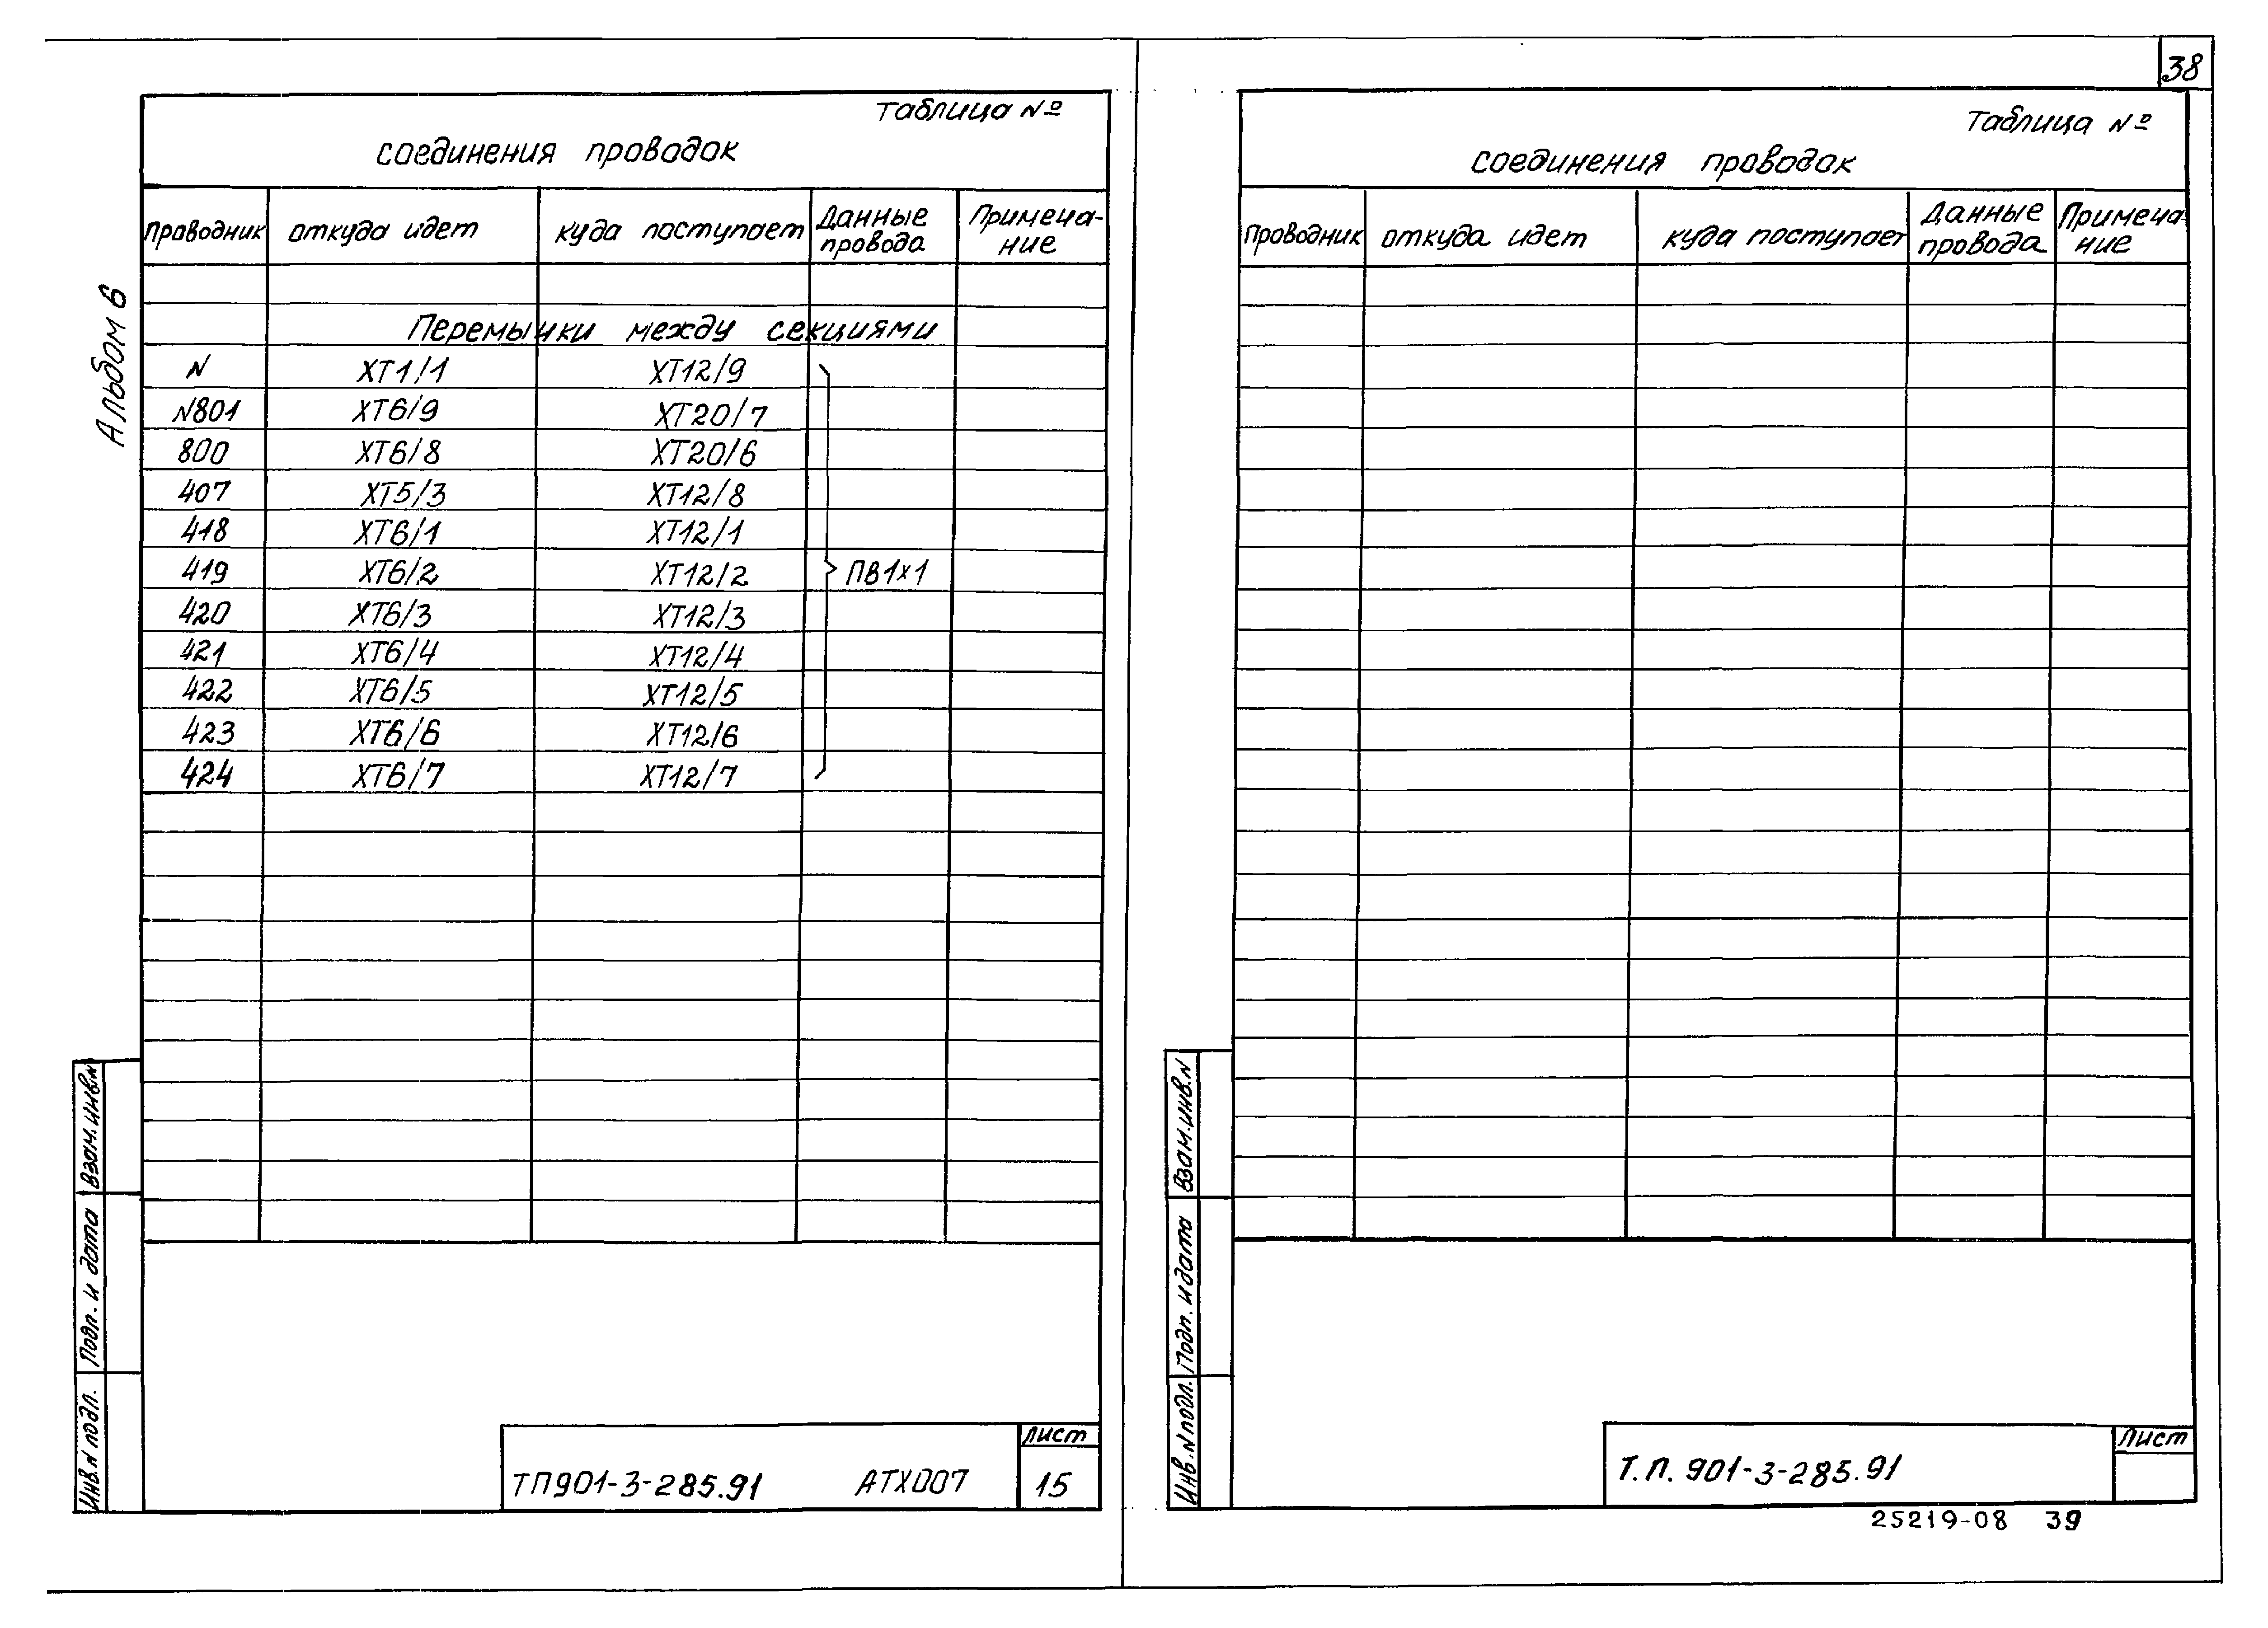 38
Альбом 6
Таблица №
соединения проводок
Проводник откуда идет куда поступает Данные провода Примеча-ние
Перемычки между секциями
N ХТ1/1 ХТ12/9
N801 ХТ6/9 ХТ20/7
800 ХТ6/8 ХТ20/6
407 ХТ5/3 ХТ12/8
418 ХТ6/1 ХТ12/1
419 ХТ6/2 ХТ12/2 ПВ1х1
420 ХТ6/3 ХТ12/3
421 ХТ6/4 ХТ12/4
422 ХТ6/5 ХТ12/5
423 ХТ6/6 ХТ12/6
424 ХТ6/7 ХТ12/7
Взам. инв.N
Подп. и дата
Инв.N подл.
ТП901-3-285.91 АТХ007
Лист
15
Таблица №
соединения проводок
Проводник откуда идет куда поступает Данные провода Примеча-ние
Взам. инв.N
Подп. и дата
Инв.N подл.
Т.П. 901-3-285.91
Лист
25219-08 39